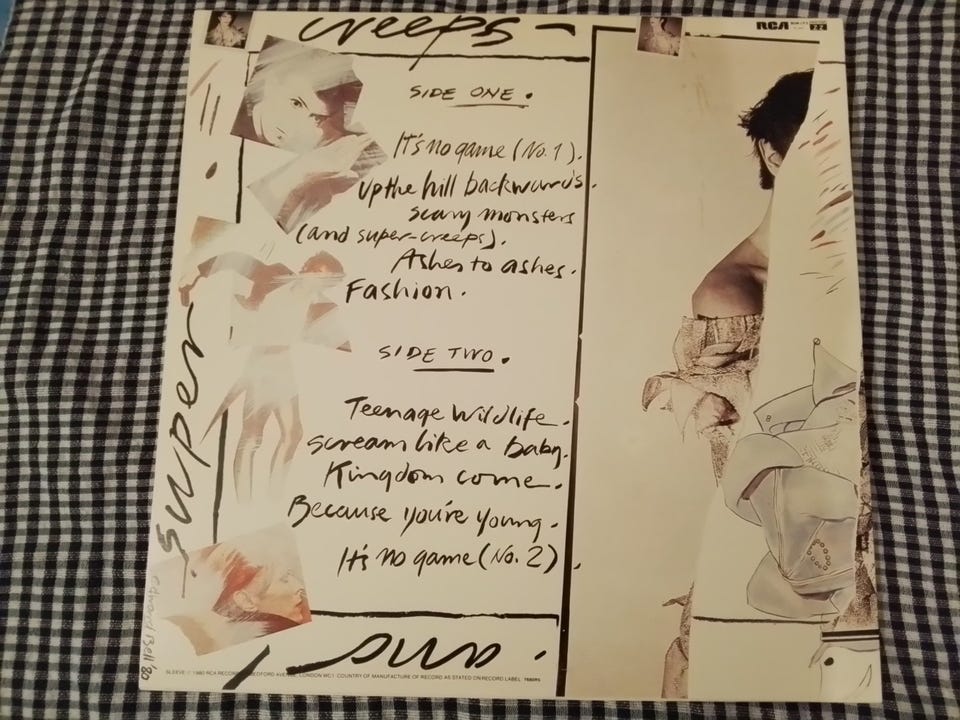 creeps
RCA
SIDE ONE.
It's no game (No. 1).
Up the hill backwards.
scary monsters
(and super-creeps).
Ashes to ashes.
Fashion.
SIDE TWO.
Teenage Wildlife.
Scream like a baby.
Kingdom come.
Because you're young.
It's no game (No. 2).
super
and
Edward Bell '80
SLEEVE Ⓟ 1980 RCA RECORDS, BEDFORD AVENUE, LONDON WC1 COUNTRY OF MANUFACTURE OF RECORD AS STATED ON RECORD LABEL